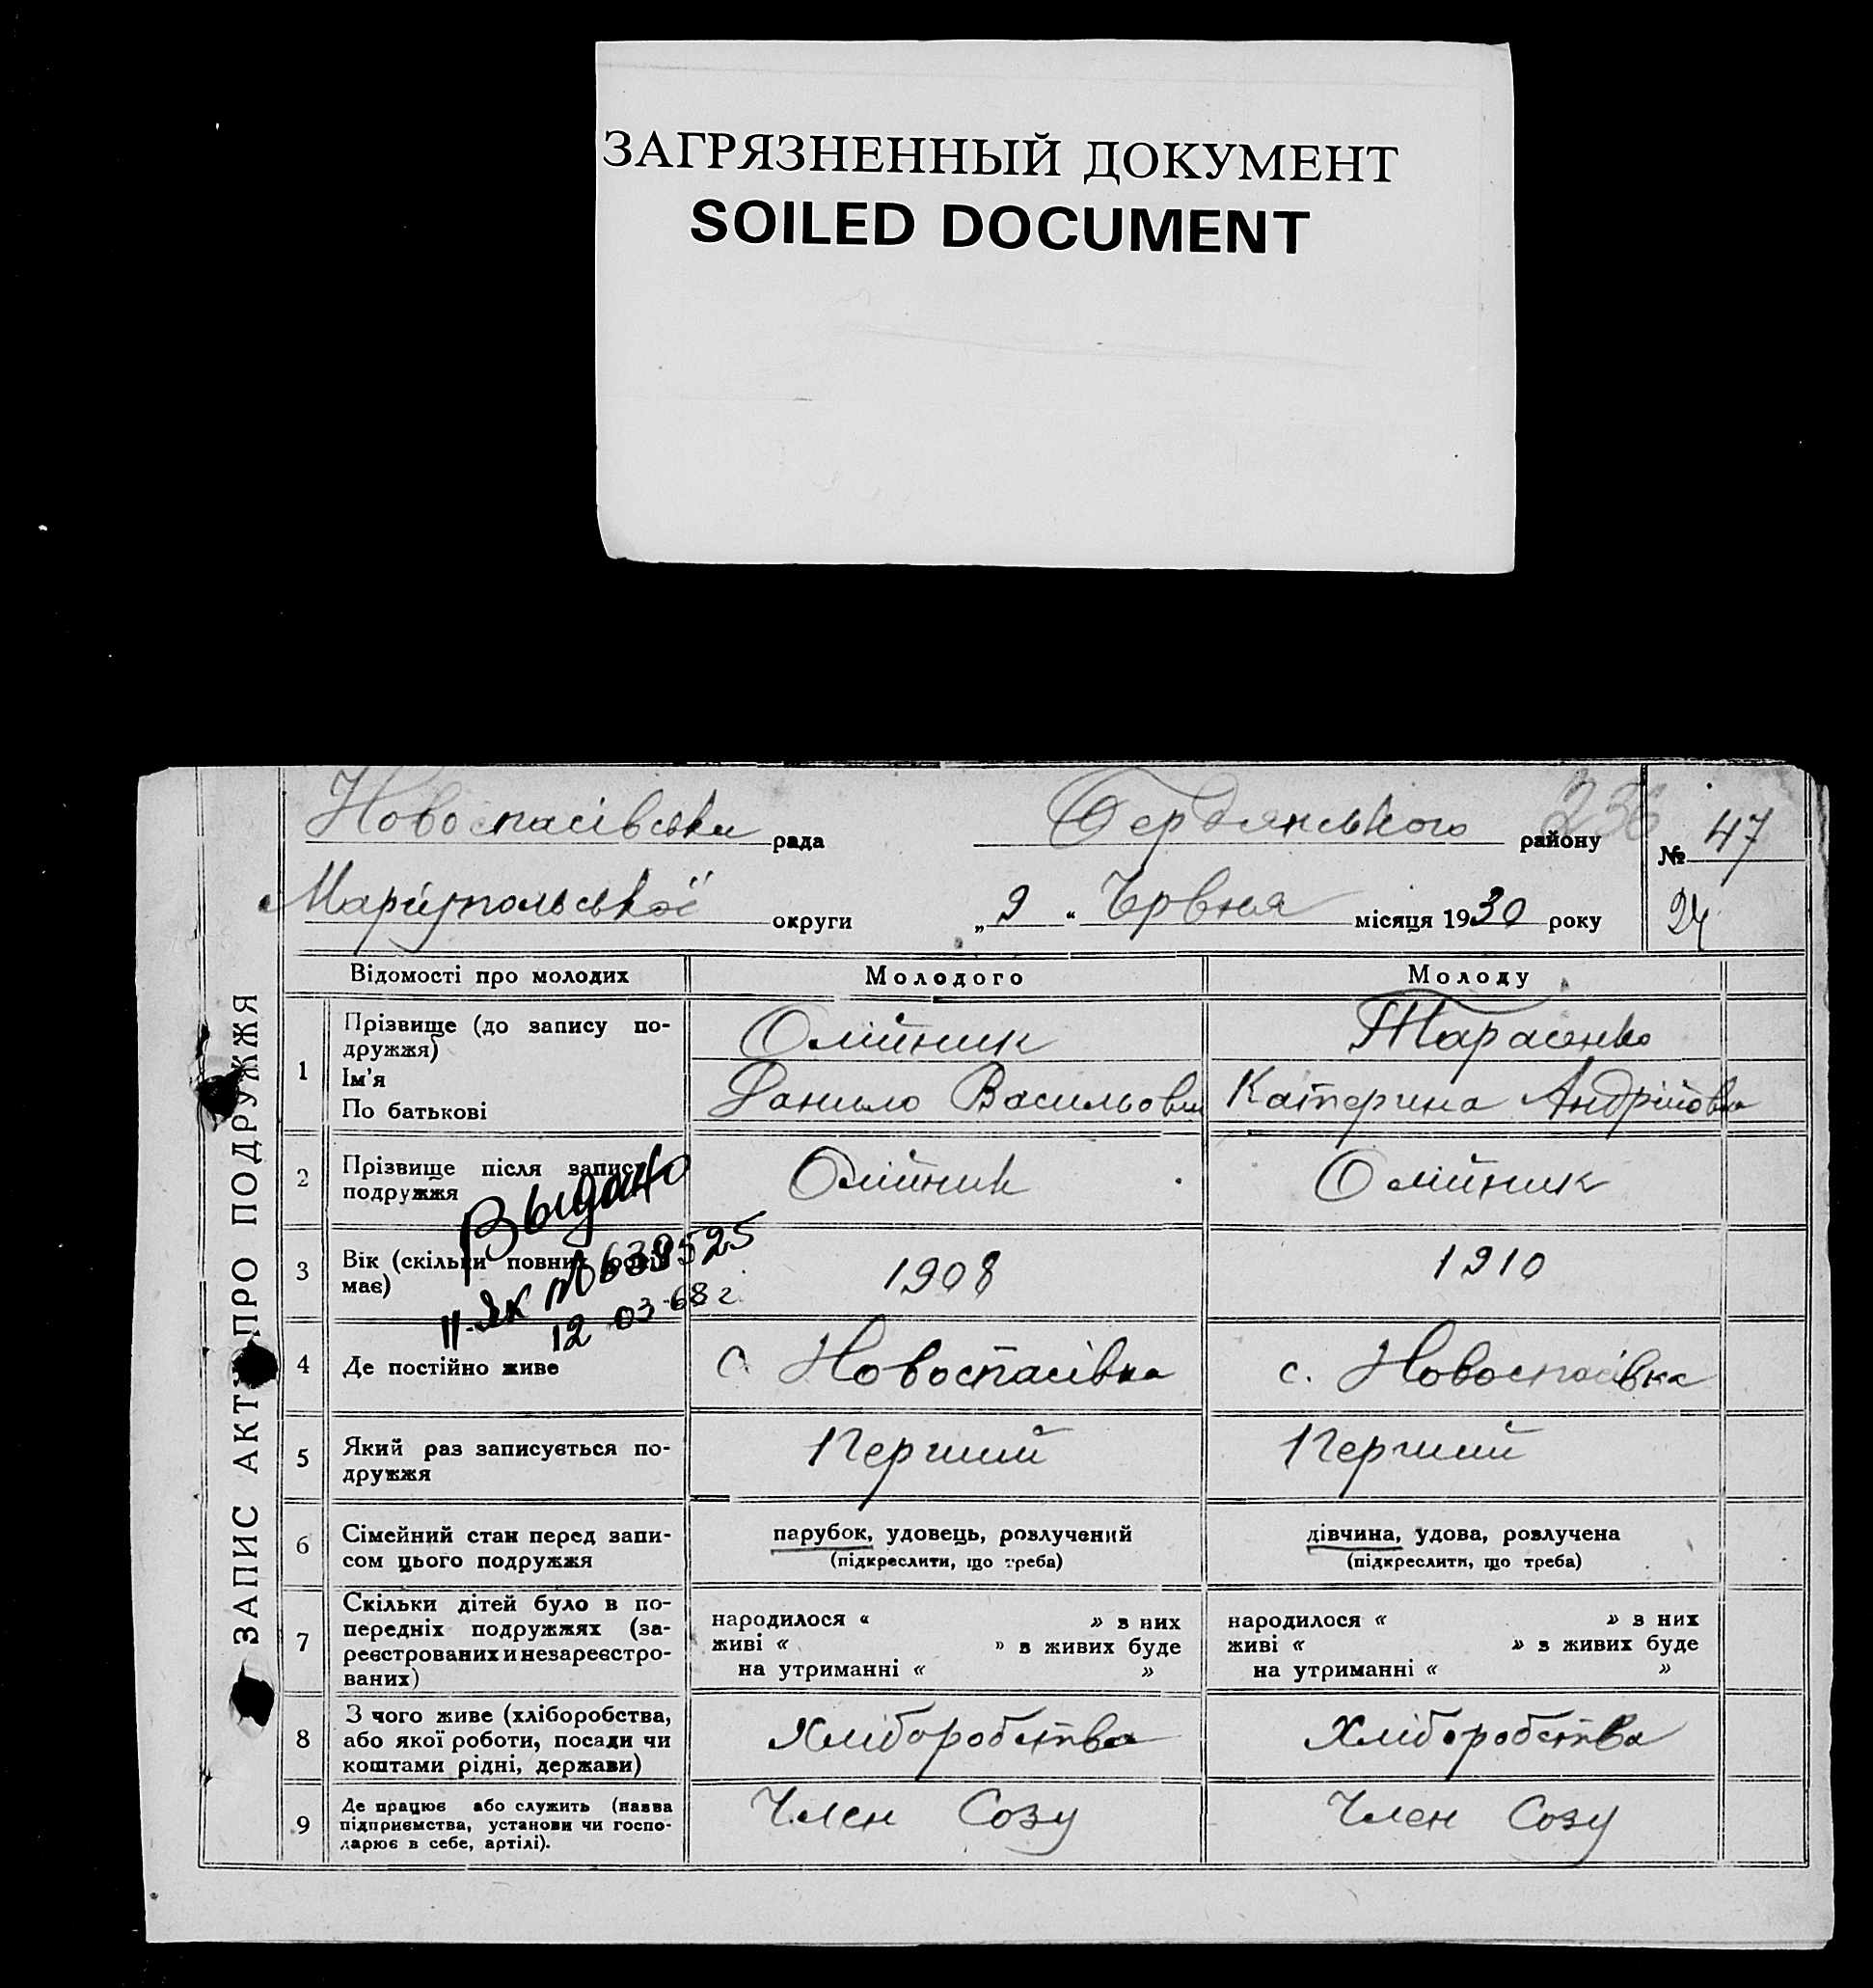 ЗАГРЯЗНЕННЫЙ ДОКУМЕНТ
SOILED DOCUMENT
236
Новоспасівська рада Бердянського району № 47
Маріупольської округи „ 9 “ Червня місяця 1930 року 24
ЗАПИС АКТУ ПРО ПОДРУЖЖЯ
Відомості про молодих Молодого Молоду
1 Прізвище (до запису по-
дружжя) Олійник Тарасенко
Ім'я
По батькові Данило Васильович Катерина Андрійовна
2 Прізвище після запису
подружжя Олійник Олійник
Выдано
3 Вік (скільки повних років
має) 1908 1910
II-ЯК № 639525
12 03-68 г.
4 Де постійно живе с. Новоспасівка с. Новоспасівка
5 Який раз записується по-
дружжя Перший Перший
6 Сімейний стан перед запи-
сом цього подружжя парубок, удовець, розлучений дівчина, удова, розлучена
(підкреслити, що треба) (підкреслити, що треба)
7 Скільки дітей було в по-
передніх подружжях (за-
реєстрованих и незареєстро-
ваних) народилося « » з них народилося « » з них
живі « » з живих буде живі « » з живих буде
на утриманні « » на утриманні « »
8 З чого живе (хліборобства,
або якої роботи, посади чи
коштами рідні, держави) Хліборобства Хліборобства
9 Де працює або служить (назва
підприємства, установи чи госпо-
дарює в себе, артілі). Член Созу Член Созу